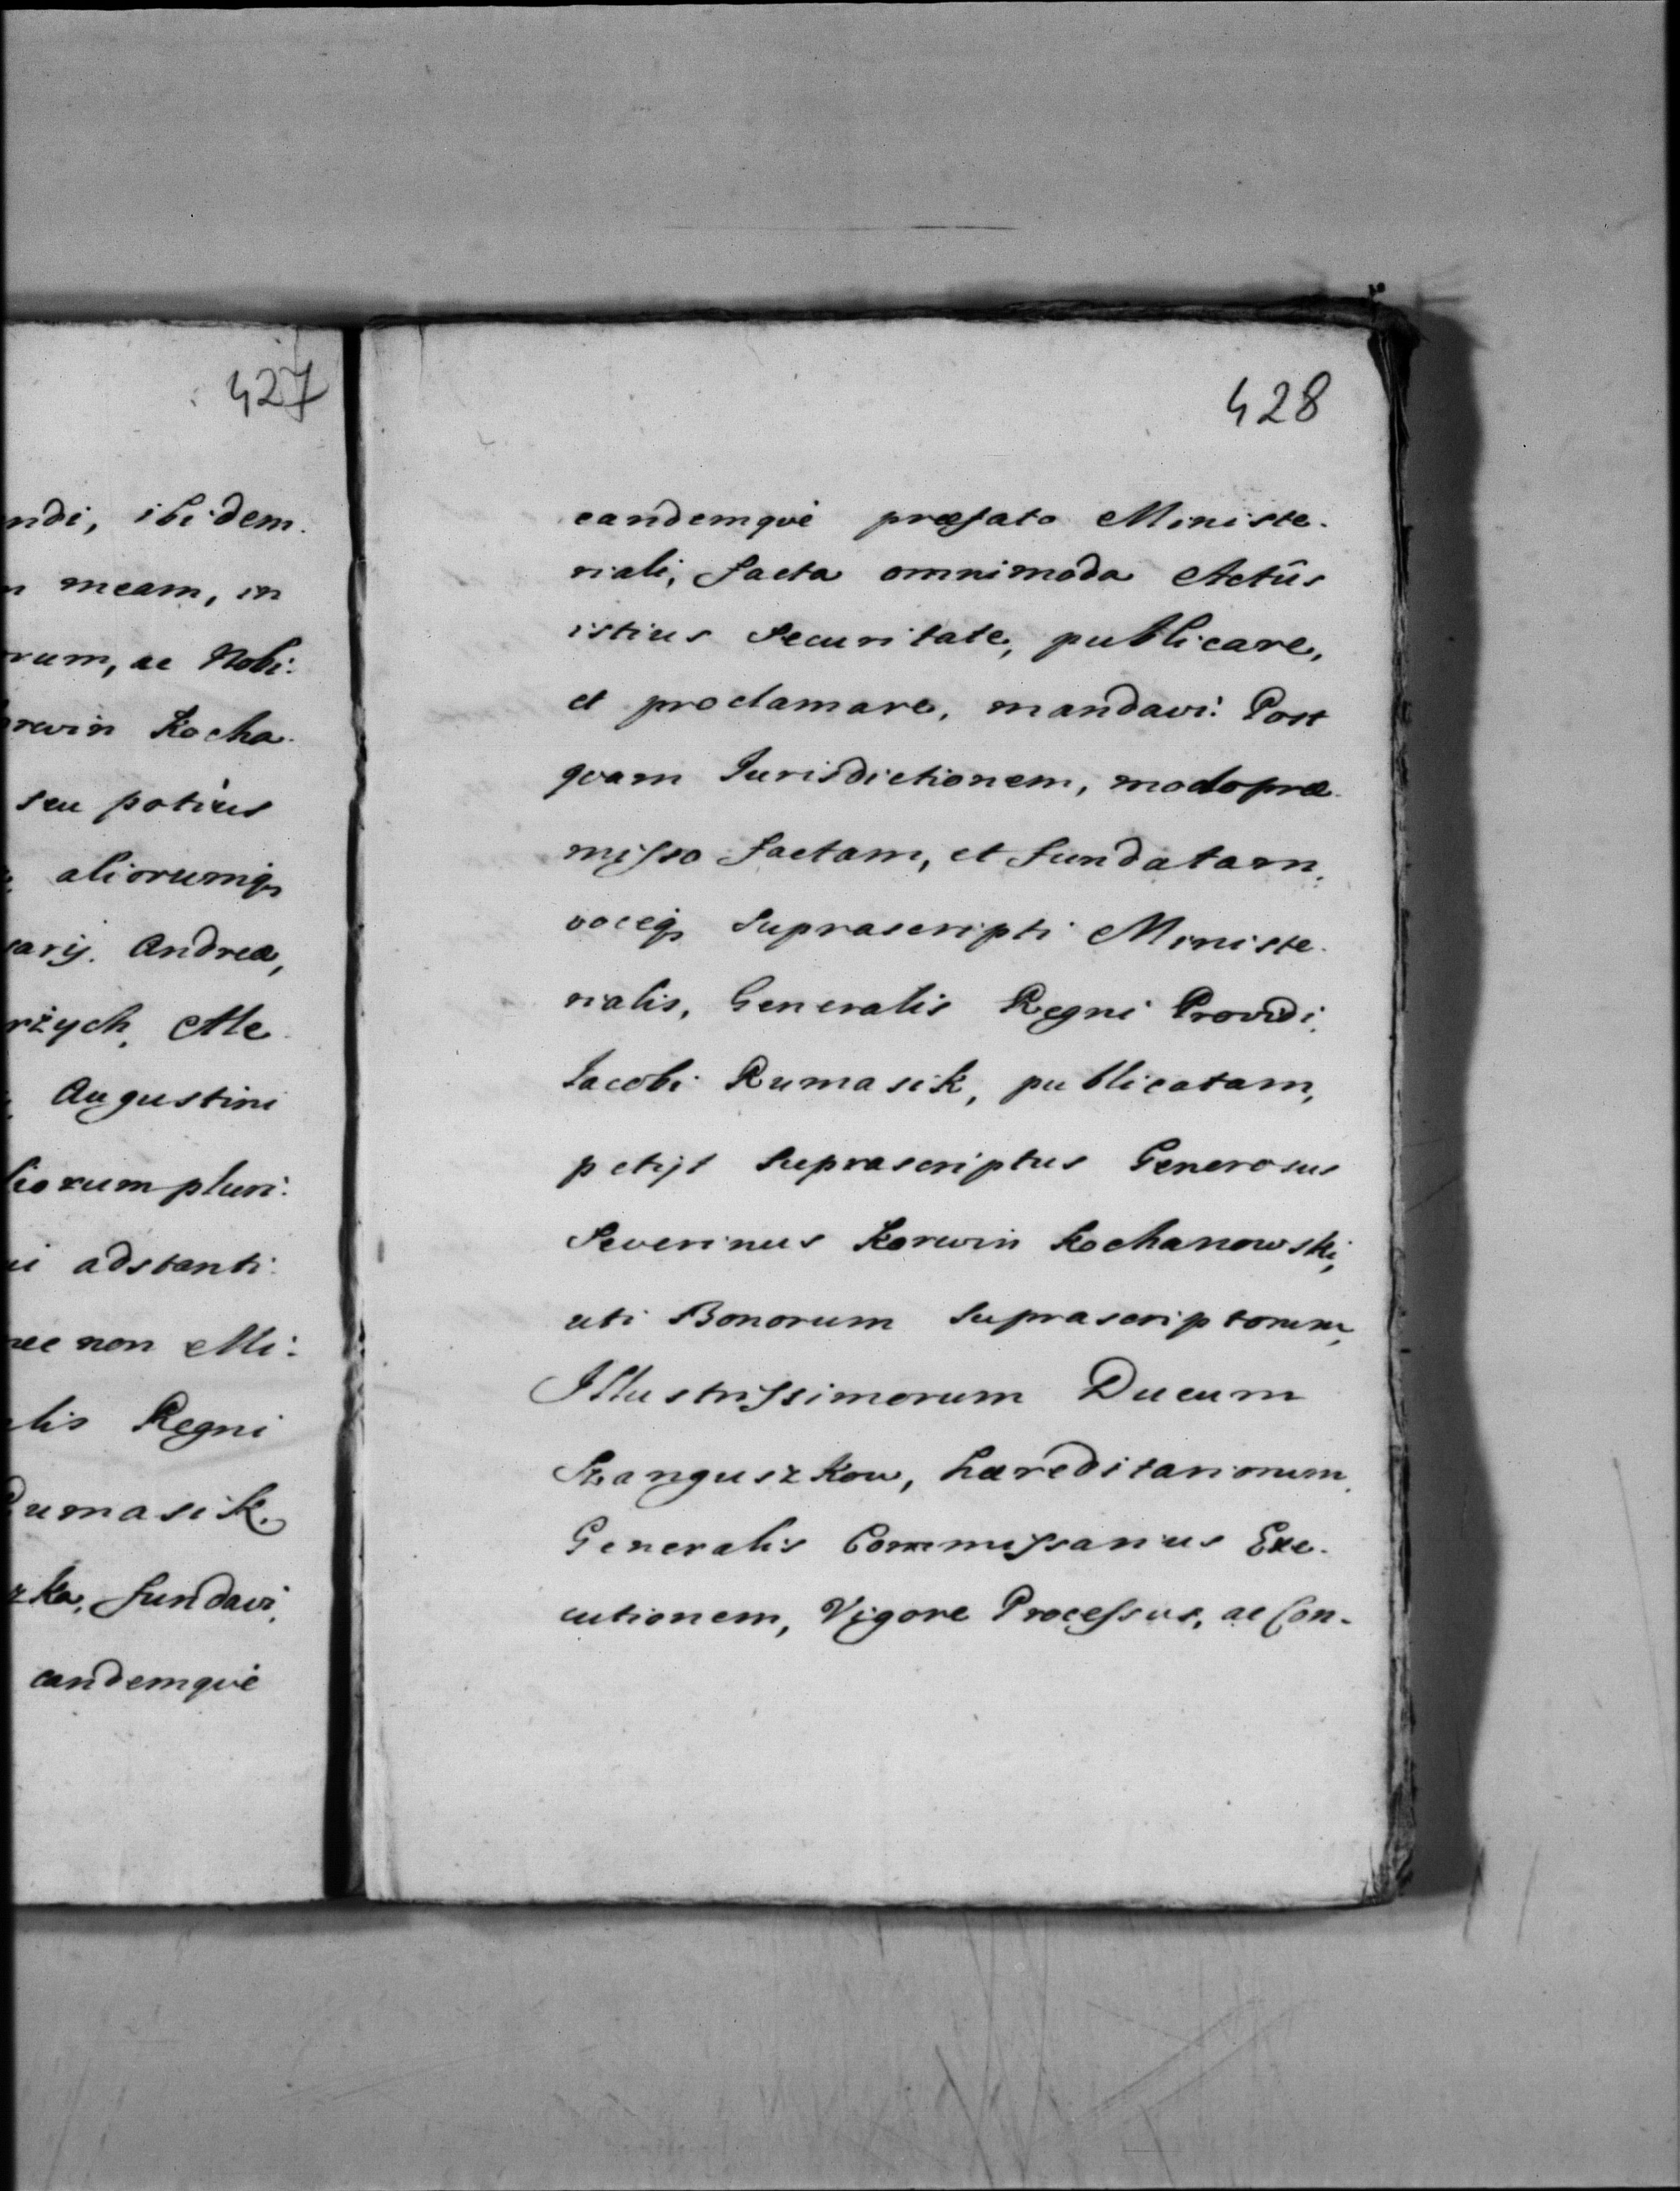 427
ndi, ibidem.
meam, in
rum, ac Nobi:
rwin Kocha.
seu potius
aliorumq,
sarij. Andreæ,
rżych, Me
Augustini
liorum pluri:
ui adstanti:
nec non Mi:
lis Regni
Rumasik.
zka, fundavi,
eandemqvè
428
eandemqvè præfato Ministe.
riali, facta omnimoda Actûs
istius Securitate, publicare,
et proclamare, mandavi: Post
qvam Jurisdictionem, modopræ.
misso factam, et fundatam,
voceq, Suprascripti Ministe.
rialis, Generalis Regni Providi,
Jacobi Rumasik, publicatam,
petijt Suprascriptus Generosus
Severinus Korwin Kochanowski,
uti Bonorum Suprascriptorum,
Illustrissimorum Ducum
Szanguszkow, hæreditariorum,
Generalis Commissarius Exe.
cutionem, Vigore Processus, ac Con-